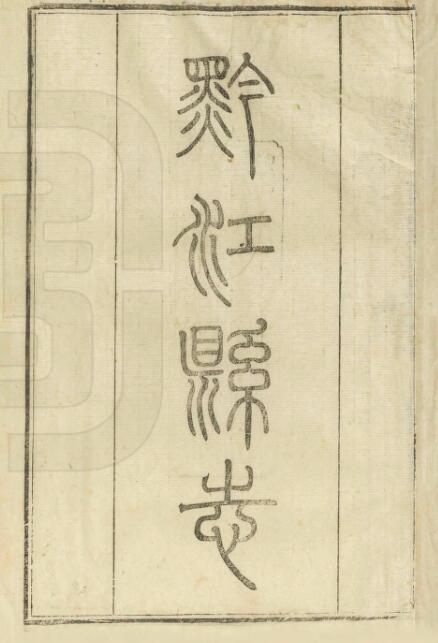 黔江縣志